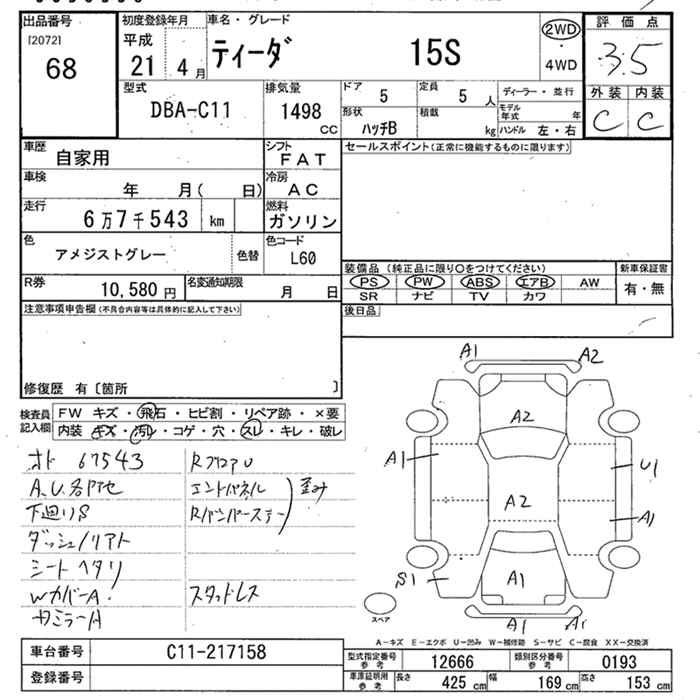 出品番号 初度登録年月 車名・グレード 評価点
[2072] 平成 ティーダ 15S 2WD 3.5
68 21 4月 ・ 4WD
型式 排気量 ドア 5 定員 5人 ディーラー・並行 外装 内装
DBA-C11 1498 cc 形状 ハッチB 積載 kg モデル年式 年 C C
ハンドル 左・右
車歴 自家用 シフト FAT セールスポイント(正常に機能するものに限ります)
車検 年 月( 日) 冷房 AC
走行 6万7千543 km 燃料 ガソリン
色 アメジストグレー 色替 色コード L60
装備品(純正品に限り○をつけてください) 新車保証書
R券 10,580円 名変通知期限 月 日 PS PW ABS エアB AW 有・無
SR ナビ TV カワ
注意事項申告欄(不具合内容等は具体的に記入して下さい) 後日品
修復歴 有[箇所 ]
検査員記入欄 FW キズ・飛石・ヒビ割・リペア跡・×要
内装 キズ・汚レ・コゲ・穴・スレ・キレ・破レ
オド 67543 RフロアU
A.U.各所他 エンドパネル 歪み
下廻りS
ダッシュノリアト
シートヘタリ
WカバーA スタッドレス
A1 A2
A2
A1 U1
A2
A1
S1 A1
A1 A1
スペア
A-キズ E-エクボ U-凹み W-補修跡 S-サビ C-腐食 XX-交換済
車台番号 C11-217158 型式指定番号 参考 12666 類別区分番号 参考 0193
登録番号 車庫証明用 参考 長さ 425cm 幅 169cm 高さ 153cm